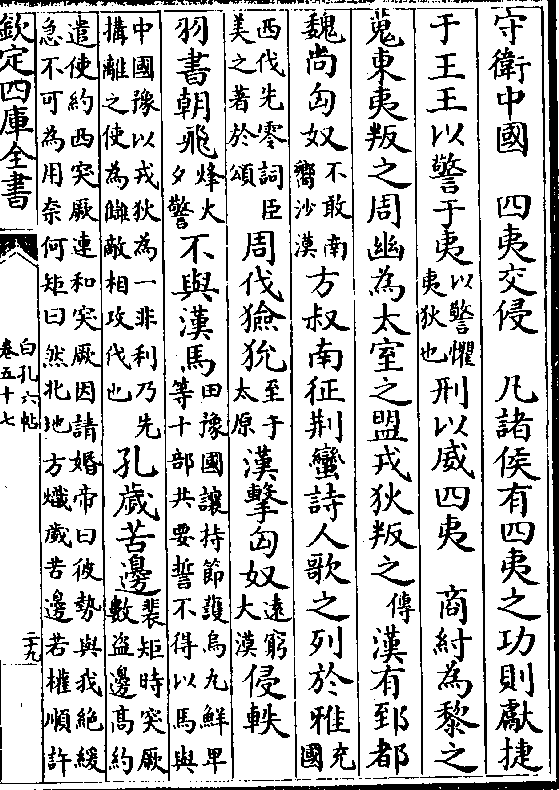 守衛中國　四夷交侵　凡諸侯有四夷之功則獻捷
于王王以警于夷以警懼夷狄也刑以威四夷　商紂為黎之
蒐東夷叛之周幽為太室之盟戎狄叛之傳漢有郅都
魏尚匈奴不敢南嚮沙漠方叔南征荆蠻詩人歌之列於雅充國
西伐先零詞臣美之著於頌周伐獫狁至于太原漢擊匈奴遠窮大漠侵軼
羽書朝飛烽火夕警不與漢馬田豫國讓持節護烏九鮮卑等十部共要誓不得以馬與
中國豫以戎狄為一非利乃先搆離之使為讎敵相攻伐也孔歲苦邊裴矩時突厥數盜邊高約
遣使約西突厥連和突厥因請婚帝曰彼勢與我絕緩急不可為用奈何矩曰然北地方熾歲苦邊若權順許
欽定四庫全書
白孔六帖
卷五十七
二十九